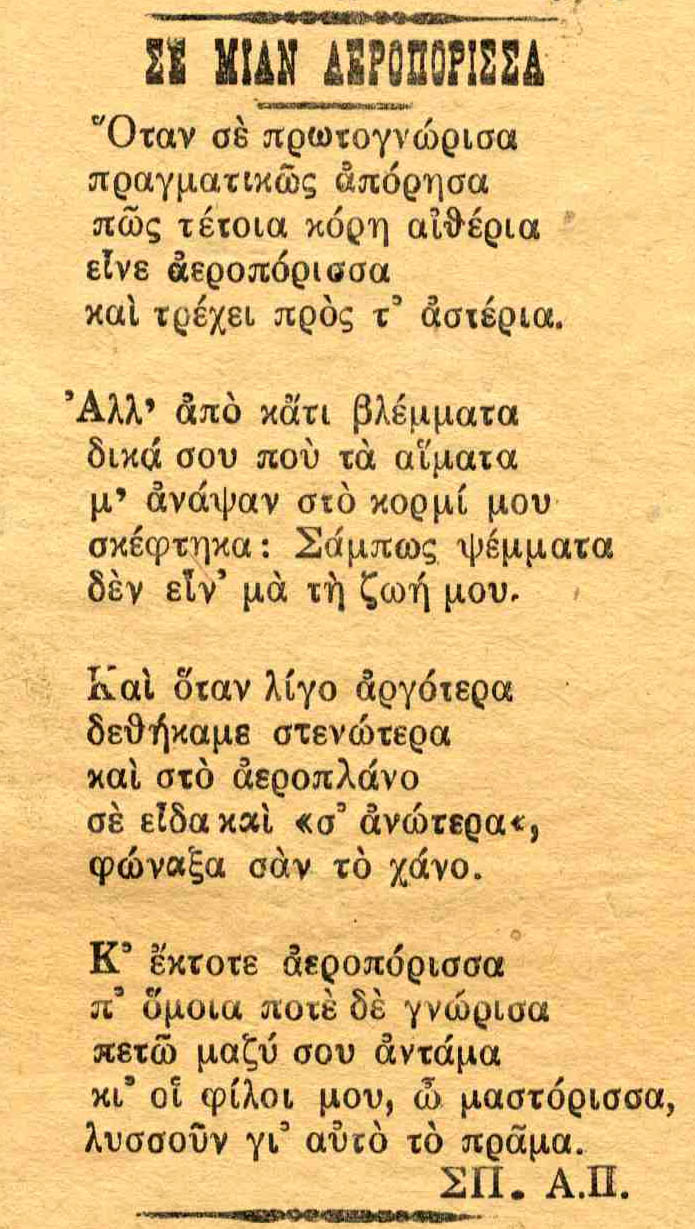 ΣΕ ΜΙΑΝ ΑΕΡΟΠΟΡΙΣΣΑ
Ὅταν σὲ πρωτογνώρισα
πραγματικῶς ἀπόρησα
πῶς τέτοια κόρη αἰθέρια
εἶνε ἀεροπόρισσα
καὶ τρέχει πρὸς τ' ἀστέρια.
Ἀλλ' ἀπὸ κἄτι βλέμματα
δικά σου ποὺ τὰ αἵματα
μ' ἀνάψαν στὸ κορμί μου
σκέφτηκα: Σάμπως ψέμματα
δὲν εἶν' μὰ τὴ ζωή μου.
Καὶ ὅταν λίγο ἀργότερα
δεθήκαμε στενώτερα
καὶ στὸ ἀεροπλάνο
σὲ εἶδα καὶ «σ' ἀνώτερα«,
φώναξα σὰν τὸ χάνο.
Κ' ἔκτοτε ἀεροπόρισσα
π' ὅμοια ποτὲ δὲ γνώρισα
πετῶ μαζύ σου ἀντάμα
κι' οἱ φίλοι μου, ὦ μαστόρισσα,
λυσσοῦν γι' αὐτὸ τὸ πρᾶμα.
ΣΠ. Α.Π.